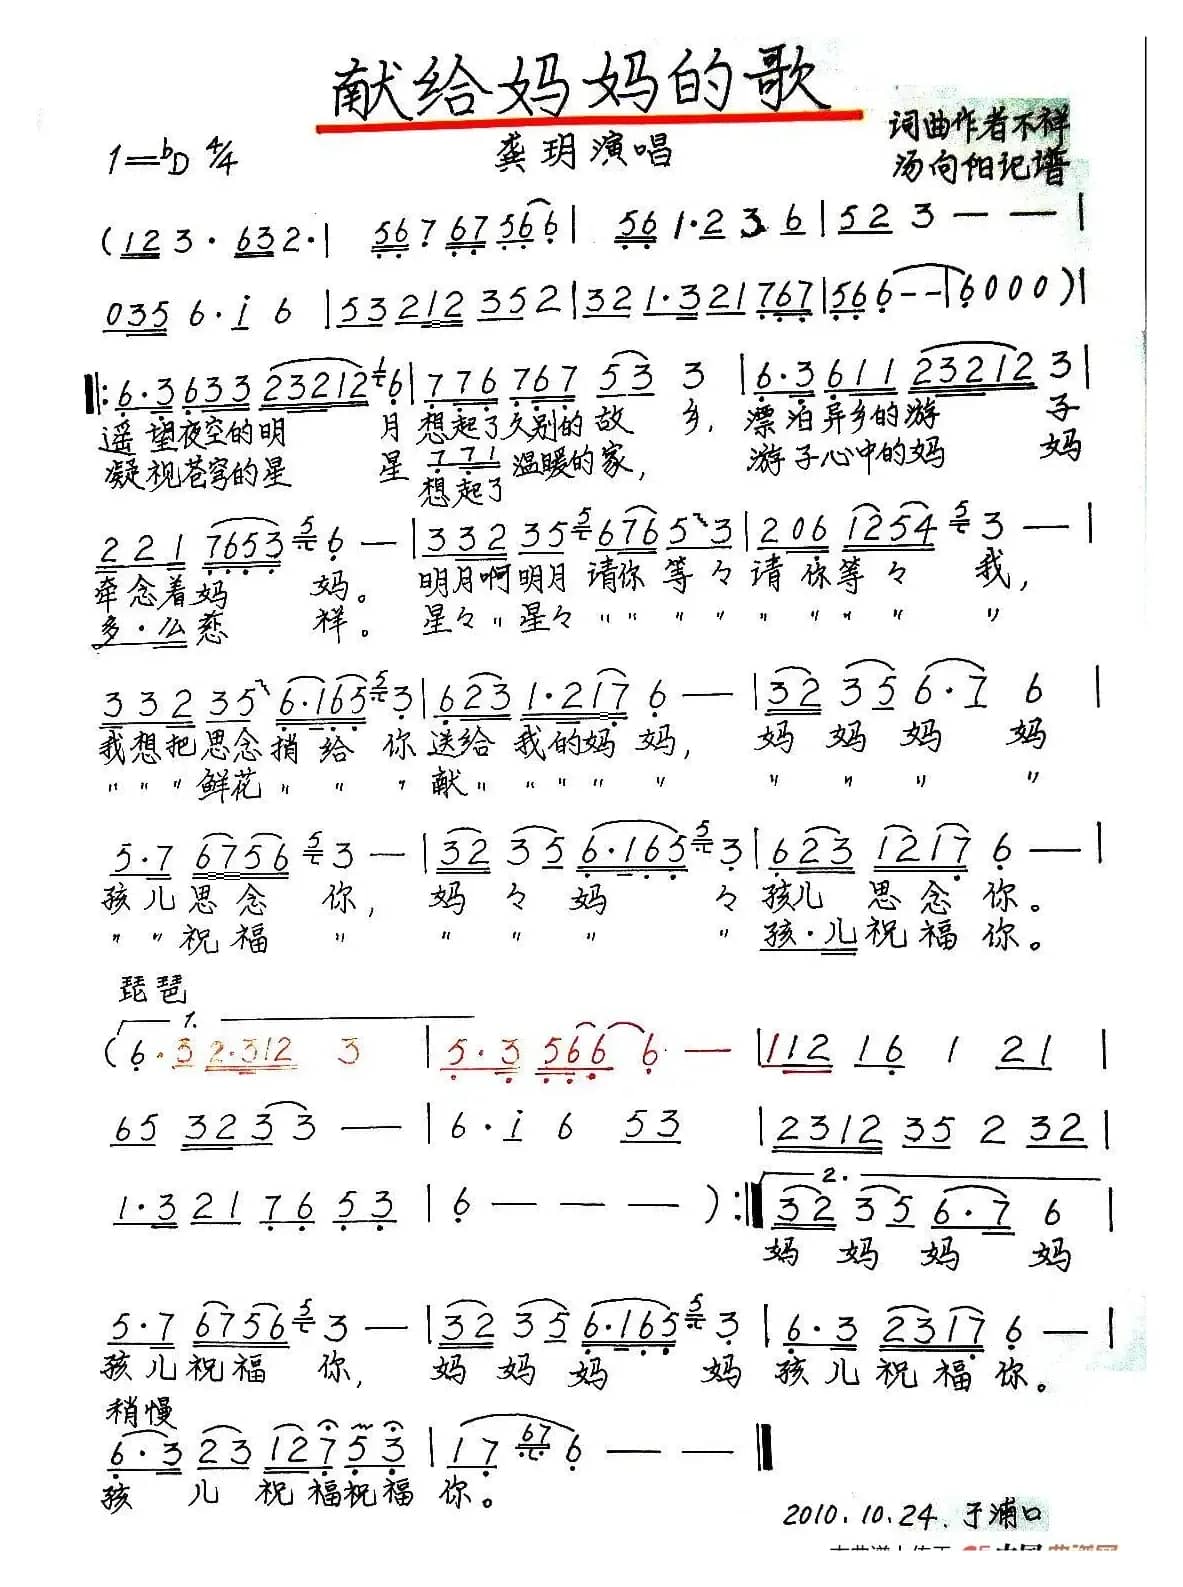 献给妈妈的歌
1=bD 4/4
龚玥演唱
词曲作者不祥
汤向阳记谱
(123·632·| 567 67 566| 561·2 3 6|523 - - |
035 6·i 6 |53212 352|321·321767|566 - - |6000)|
‖:6·3633 23212 1 6|776 767 53 3 |6·3611 23212 3|
遥望夜空的明 月 想起了久别的故 乡, 漂泊异乡的游 子
凝视苍穹的星 星 771 温暖的家, 游子心中的妈 妈
想起了
221 7653 5 6 - |332 35 5 676 5 3|206 1254 5 3 - |
牵念着妈 妈。 明月啊明月 请你 等々请 你等々 我,
多·么慈 祥。 星々"星々 " " " " " " " " "
332 35 6·165 5 3|623 1·217 6 - |32 35 6·7 6 |
我想把思念捎 给 你 送给 我的妈 妈, 妈 妈 妈 妈
" " "鲜花" " " 献" " " " " " " " "
5·7 6756 5 3 - |32 35 6·165 5 3|623 1217 6 - |
孩儿思念 你, 妈 々 妈 々 孩儿 思念你。
" "祝福 " " " " " 孩·儿祝福你。
琵琶
1.
(6·3 2·312 3 |5·3 566 6 - |112 16 1 21 |
65 3233 - |6·i 6 53 |2312 35 2 32|
1·3 21 76 53 |6 - - - ):‖ 2. 32 35 6·7 6 |
妈 妈 妈 妈
5·7 6756 5 3 - |32 35 6·165 5 3|6·3 2317 6 - |
孩儿祝福 你, 妈 妈 妈 妈 孩儿祝福你。
稍慢
6·3 23 127 53 |17 67 6 - - ‖
孩 儿 祝福祝福 你。
2010.10.24.于浦口